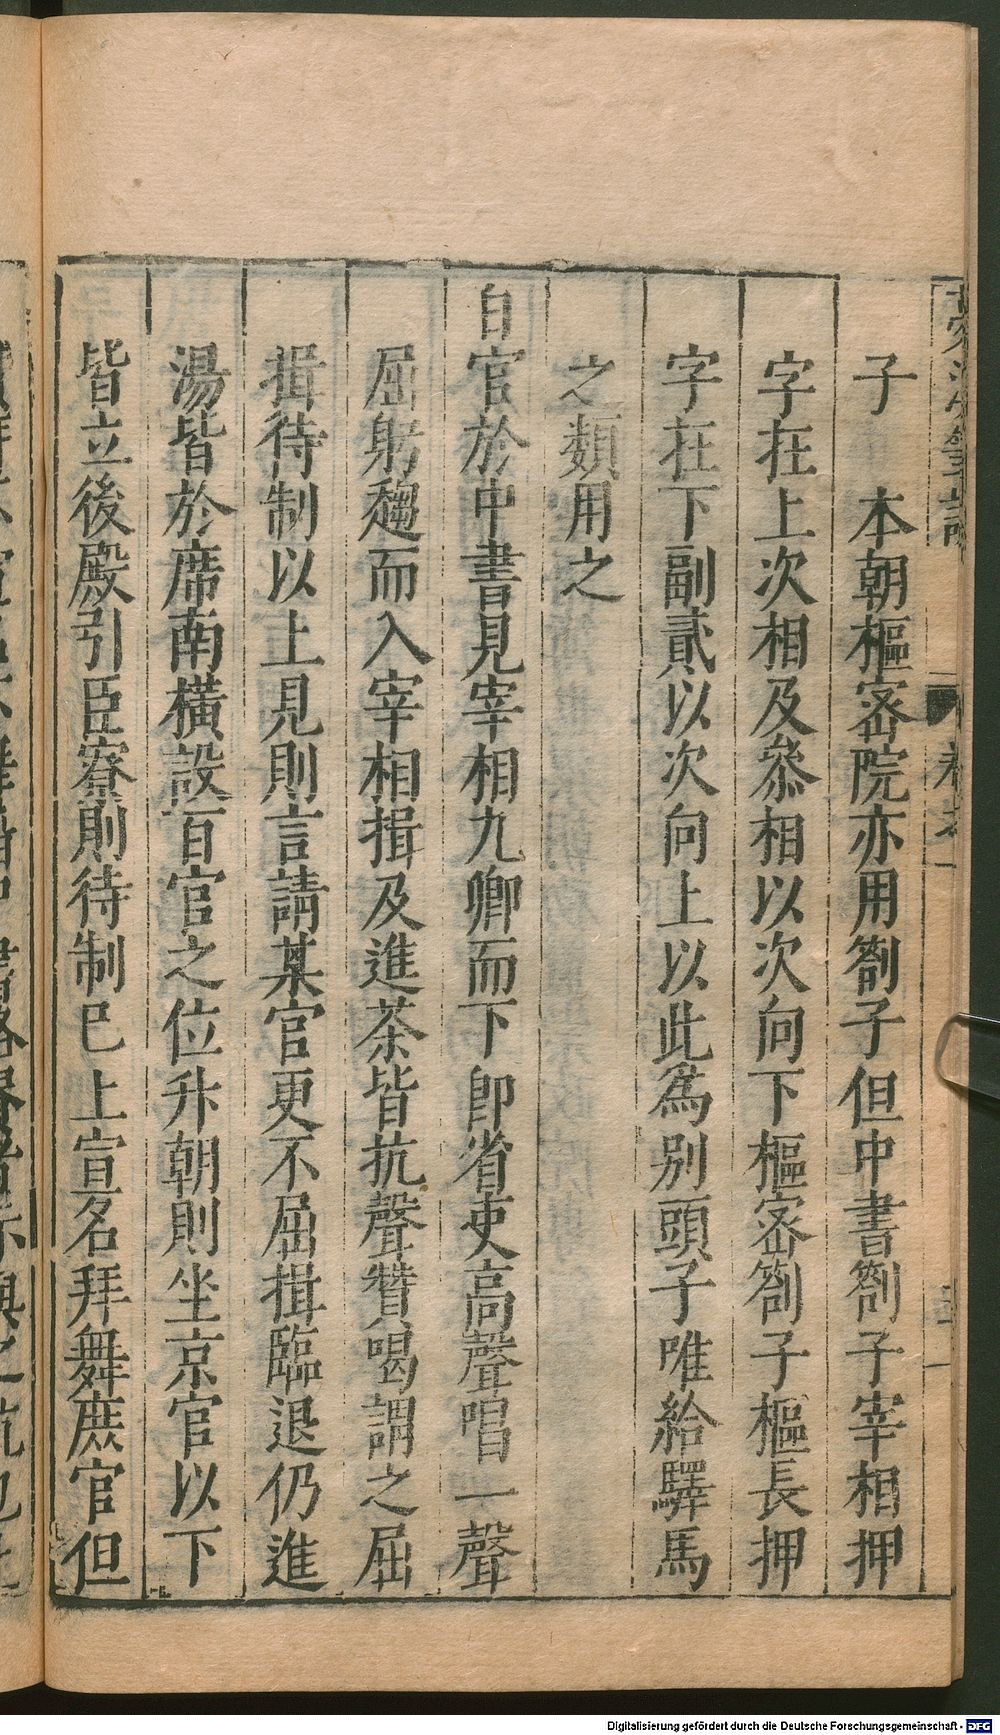 子　本朝樞密院亦用劄子但中書劄子宰相押
字在上次相及叅相以次向下樞密劄子樞長押
字在下副貳以次向上以此為別頭子唯給驛馬
之類用之
百官於中書見宰相九卿而下即省吏高聲唱一聲
屈躬趨而入宰相揖及進茶皆抗聲贊喝謂之屈
揖待制以上見則言請某官更不屈揖臨退仍進
湯皆於席南橫設百官之位升朝則坐京官以下
皆立後殿引臣寮則待制已上宣名拜舞庶官但
Digitalisierung gefördert durch die Deutsche Forschungsgemeinschaft - DFG